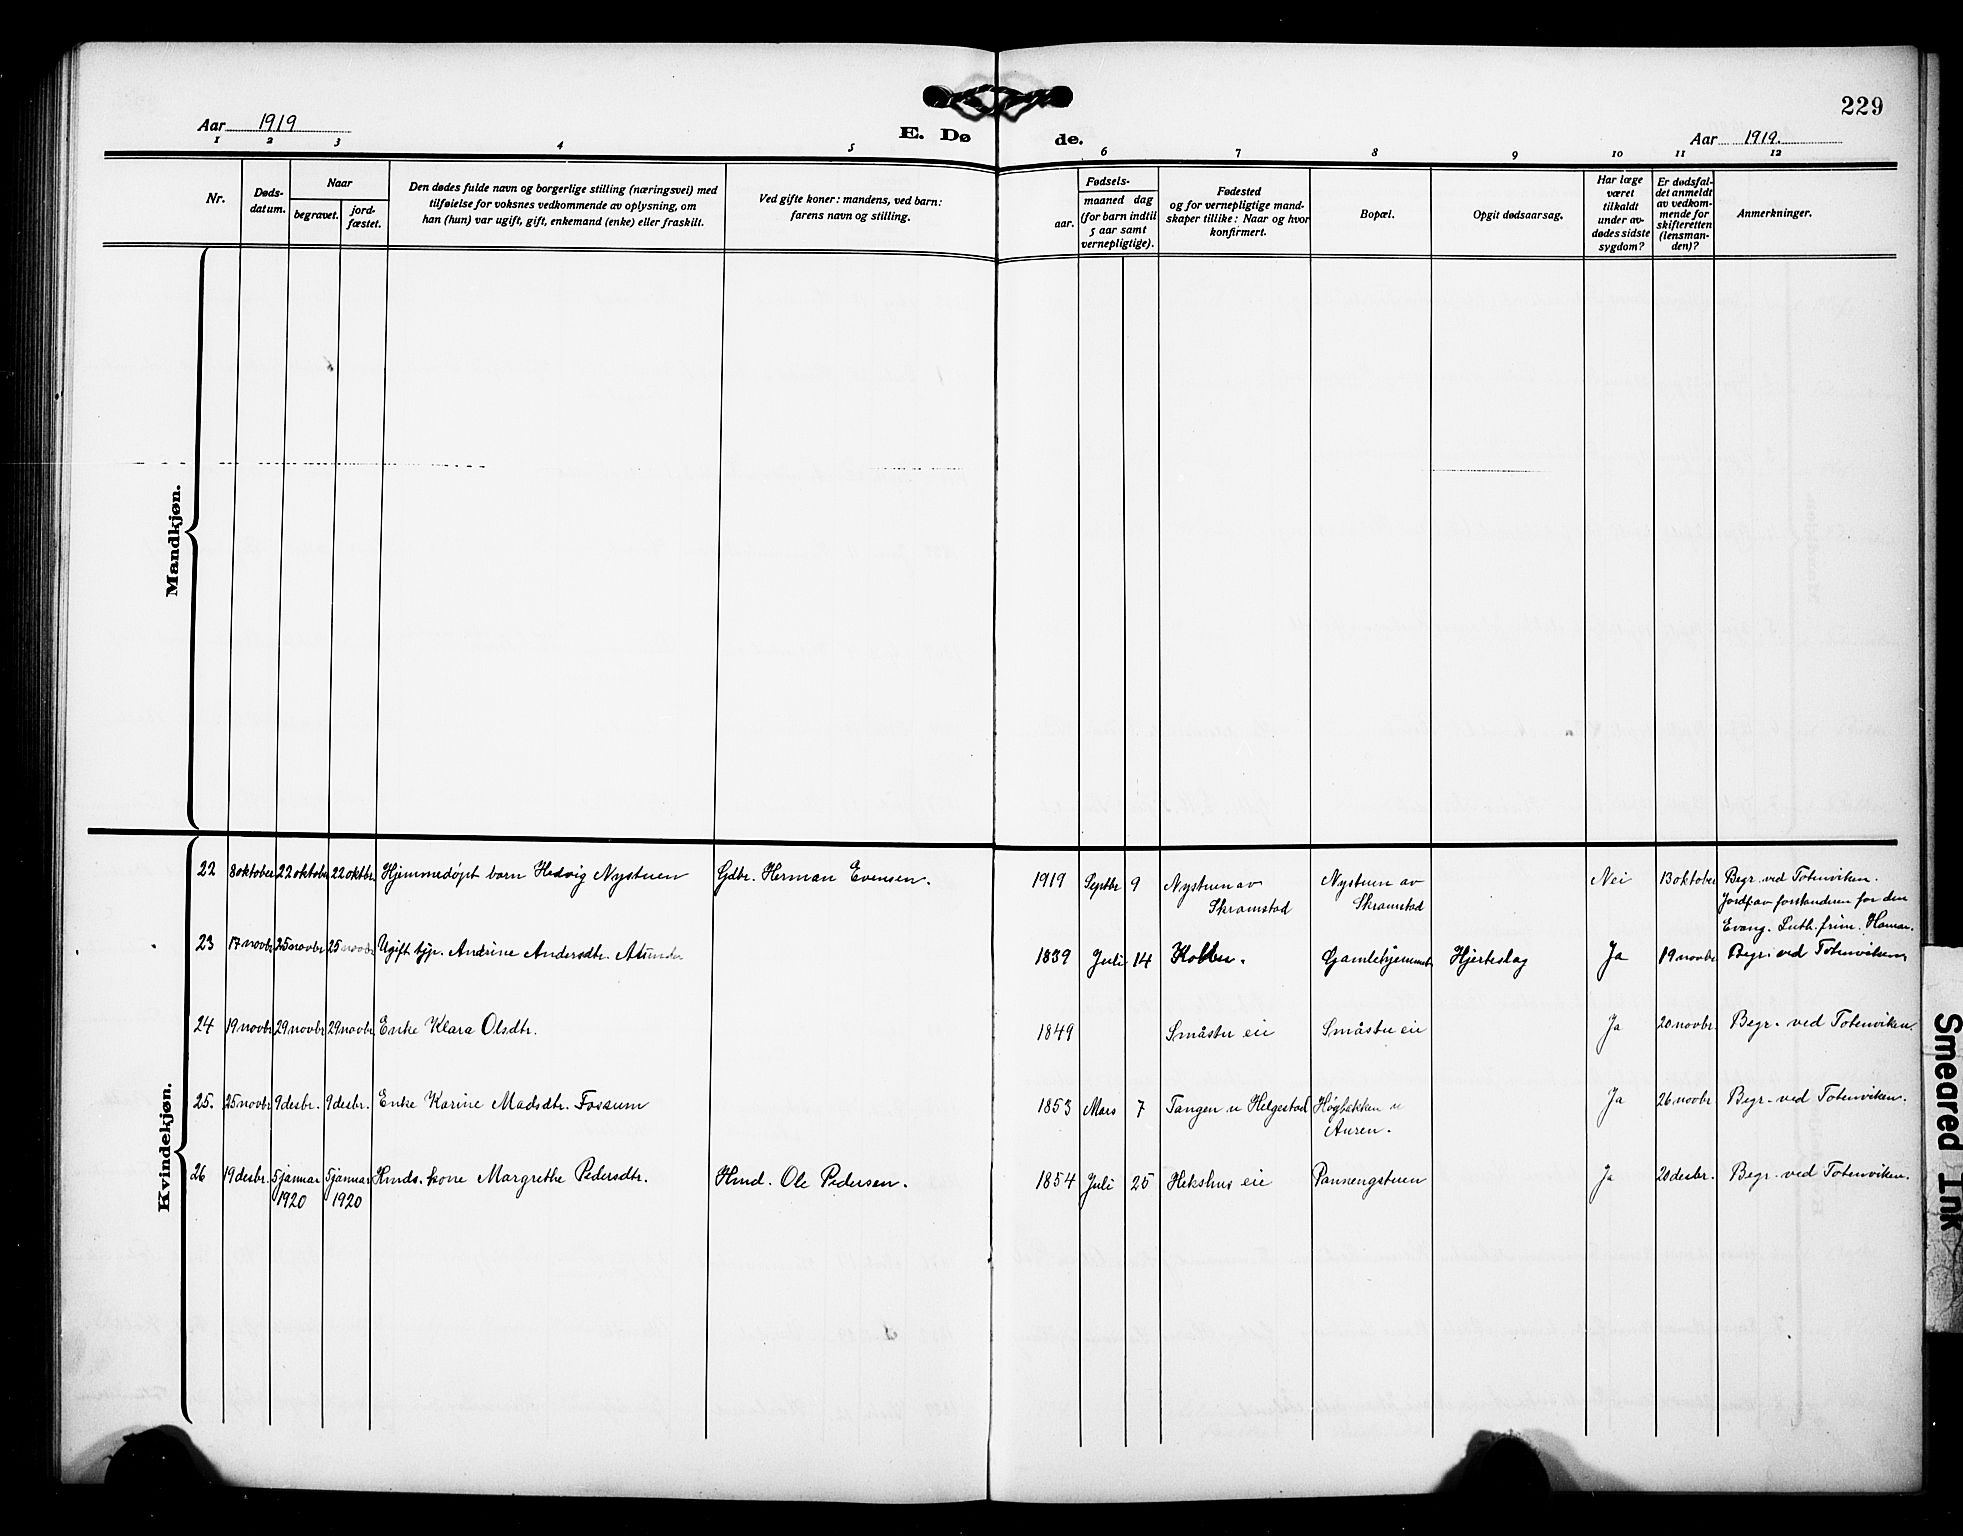 229
Aar 1919
E. Dø
de.
Aar 1919.
1 2 3 4 5 6 7 8 9 10 11 12
Nr.
Døds-
datum.
Naar
begravet.
jord-
fæstet.
Den dødes fulde navn og borgerlige stilling (næringsvei) med
tilføielse for voksnes vedkommende av oplysning, om
han (hun) var ugift, gift, enkemand (enke) eller fraskilt.
Ved gifte koner: mandens, ved barn:
farens navn og stilling.
Fødsels-
aar.
maaned dag
(for barn indtil
5 aar samt
vernepligtige).
Fødested
og for vernepligtige mand-
skaper tillike: Naar og hvor
konfirmert.
Bopæl.
Opgit dødsaarsag.
Har læge
været
tilkaldt
under av-
dødes sidste
sygdom?
Er dødsfal-
det anmeldt
av vedkom-
mende for
skifteretten
(lensman-
den)?
Anmerkninger.
Mandkjøn.
Kvindekjøn.
22 8 oktober 22 oktober 22 oktbr. Hjemmedøpt barn Hedvig Nystuen Gdbr. Herman Evensen. 1919 Septbr 9 Nystuen av Nystuen av Nei 13 oktober Begr. ved Totenviken.
Skramstad Skramstad Jordf. av forstanderen for den
Evang. Luth. frim. Hamar.
23 17 novbr 25 novbr 25 novbr Ugift tjp. Andrine Andersdtr. 1839 Juli 14 Kolbu. Gamlehjemmet Hjerteslag Ja 19 novbr Begr. ved Totenviken
24 19 novbr 29 novbr 29 novbr Enke Klara Olsdtr. 1849 Småstu eie Småstu eie Ja 20 novbr. Begr. ved Totenviken.
25. 25 novbr 9 desbr. 9 desbr. Enke Karine Madsdtr. Fossum 1853 Mars 7 Tangen u Helgestad Høgbakken u Ja 26 novbr Begr. ved Totenviken.
Auren.
26 19 desbr. 5 januar 5 januar Hmds. kone Margrethe Pedersdtr. Hmd. Ole Pedersen. 1854 Juli 25 Hekshus eie Pannengstuen Ja 20 desbr. Begr. ved Totenviken.
1920 1920
Smeared Ink